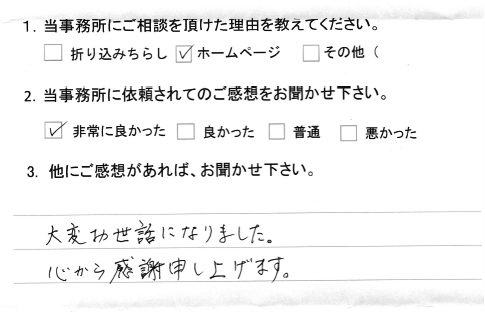 1. 当事務所にご相談を頂けた理由を教えてください。
□ 折り込みちらし ☑ ホームページ □ その他（
2. 当事務所に依頼されてのご感想をお聞かせ下さい。
☑ 非常に良かった □ 良かった □ 普通 □ 悪かった
3. 他にご感想があれば、お聞かせ下さい。
大変お世話になりました。
心から感謝申し上げます。